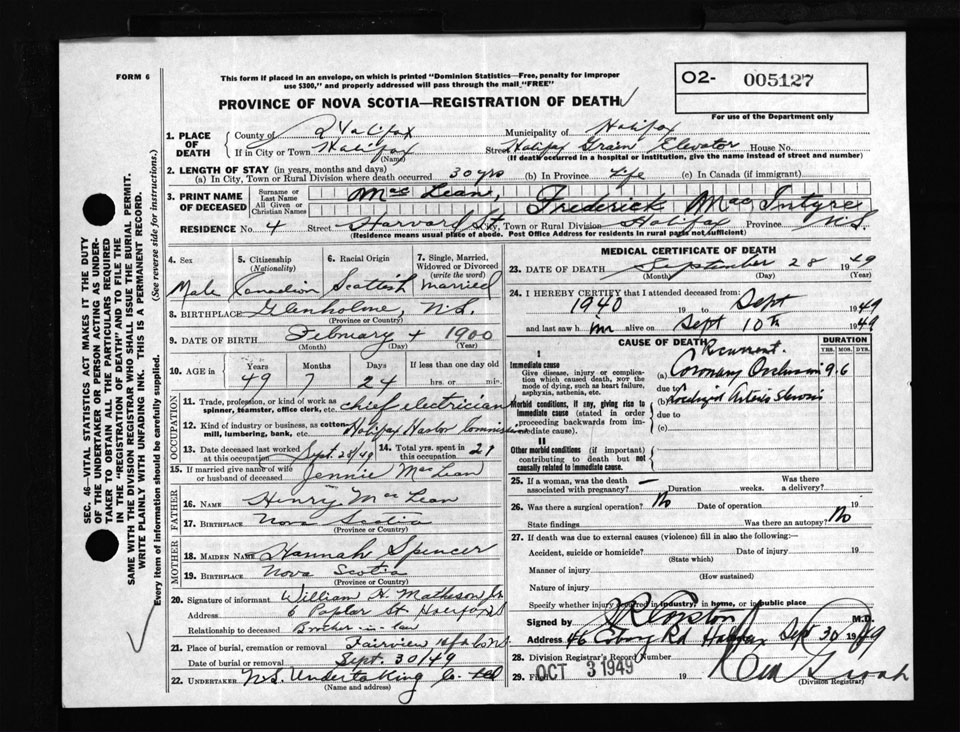 FORM 6
This form if placed in an envelope, on which is printed "Dominion Statistics—Free, penalty for improper use $300," and properly addressed will pass through the mail "FREE"
O2- 005127
For use of the Department only
PROVINCE OF NOVA SCOTIA—REGISTRATION OF DEATH
1. PLACE OF DEATH
County of Halifax Municipality of Halifax
If in City or Town Halifax (Name) Street Halifax Grain Elevator House No.
(If death occurred in a hospital or institution, give the name instead of street and number)
2. LENGTH OF STAY (in years, months and days)
(a) In City, Town or Rural Division where death occurred 30 yrs (b) In Province Life (c) In Canada (if immigrant)
3. PRINT NAME OF DECEASED
Surname or Last Name Mac Lean,
All Given or Christian Names Frederick Mac Intyre
RESIDENCE No. 4 Street Harvard St. City, Town or Rural Division Halifax Province N.S.
(Residence means usual place of abode. Post Office Address for residents in rural parts not sufficient)
4. Sex Male
5. Citizenship (Nationality) Canadian
6. Racial Origin Scottish
7. Single, Married, Widowed or Divorced (write the word) married
8. BIRTHPLACE Glenholme, N.S.
(Province or Country)
9. DATE OF BIRTH February 4 1900
(Month) (Day) (Year)
10. AGE in Years Months Days If less than one day old
49 7 24 hrs. or min.
OCCUPATION
11. Trade, profession, or kind of work as spinner, teamster, office clerk, etc. chief electrician
12. Kind of industry or business, as cotton-mill, lumbering, bank, etc. Halifax Harbor Commission
13. Date deceased last worked at this occupation Sept. 28/49
14. Total yrs. spent in this occupation 21
15. If married give name of wife or husband of deceased Jennie Mac Lean
FATHER
16. NAME Henry Mac Lean
17. BIRTHPLACE Nova Scotia
(Province or Country)
MOTHER
18. MAIDEN NAME Hannah Spencer
19. BIRTHPLACE Nova Scotia
(Province or Country)
20. Signature of informant William H. Matheson
Address 6 Poplar St
Relationship to deceased Brother-in-law
21. Place of burial, cremation or removal Fairview
Date of burial or removal Sept. 30/49
22. UNDERTAKER N.S. Undertaking Co. Ltd
(Name and address)
MEDICAL CERTIFICATE OF DEATH
23. DATE OF DEATH September 28 1949
(Month) (Day) (Year)
24. I HEREBY CERTIFY that I attended deceased from:
1940 19 to Sept 1949
and last saw him alive on Sept 10th 1949
CAUSE OF DEATH
DURATION
YRS. MOS. DYS.
I
Immediate cause
Give disease, injury or complication which caused death, not the mode of dying, such as heart failure, asphyxia, asthenia, etc.
Recurrent.
(a) Coronary Occlusion 9 6
due to
Morbid conditions, if any, giving rise to immediate cause (stated in order proceeding backwards from immediate cause).
(b) Arterio Sclerosis
due to
(c)
II
Other morbid conditions (if important) contributing to death but not causally related to immediate cause.
25. If a woman, was the death associated with pregnancy? — Duration weeks. Was there a delivery?
26. Was there a surgical operation? No Date of operation 19
State findings Was there an autopsy? No
27. If death was due to external causes (violence) fill in also the following:—
Accident, suicide or homicide? Date of injury 19
(State which)
Manner of injury
(How sustained)
Nature of injury
Specify whether injury occurred in industry, in home, or in public place
Signed by M.D.
Address 46 Coburg Rd Halifax Sept 30 1949
28. Division Registrar's Record Number
29. Filed OCT 3 1949 19
(Division Registrar)
SEC. 46—VITAL STATISTICS ACT MAKES IT THE DUTY OF THE UNDERTAKER OR PERSON ACTING AS UNDERTAKER TO OBTAIN ALL THE PARTICULARS REQUIRED IN THE "REGISTRATION OF DEATH" AND TO FILE THE SAME WITH THE DIVISION REGISTRAR WHO SHALL ISSUE THE BURIAL PERMIT.
WRITE PLAINLY WITH UNFADING INK. THIS IS A PERMANENT RECORD.
Every item of information should be carefully supplied. (See reverse side for instructions.)